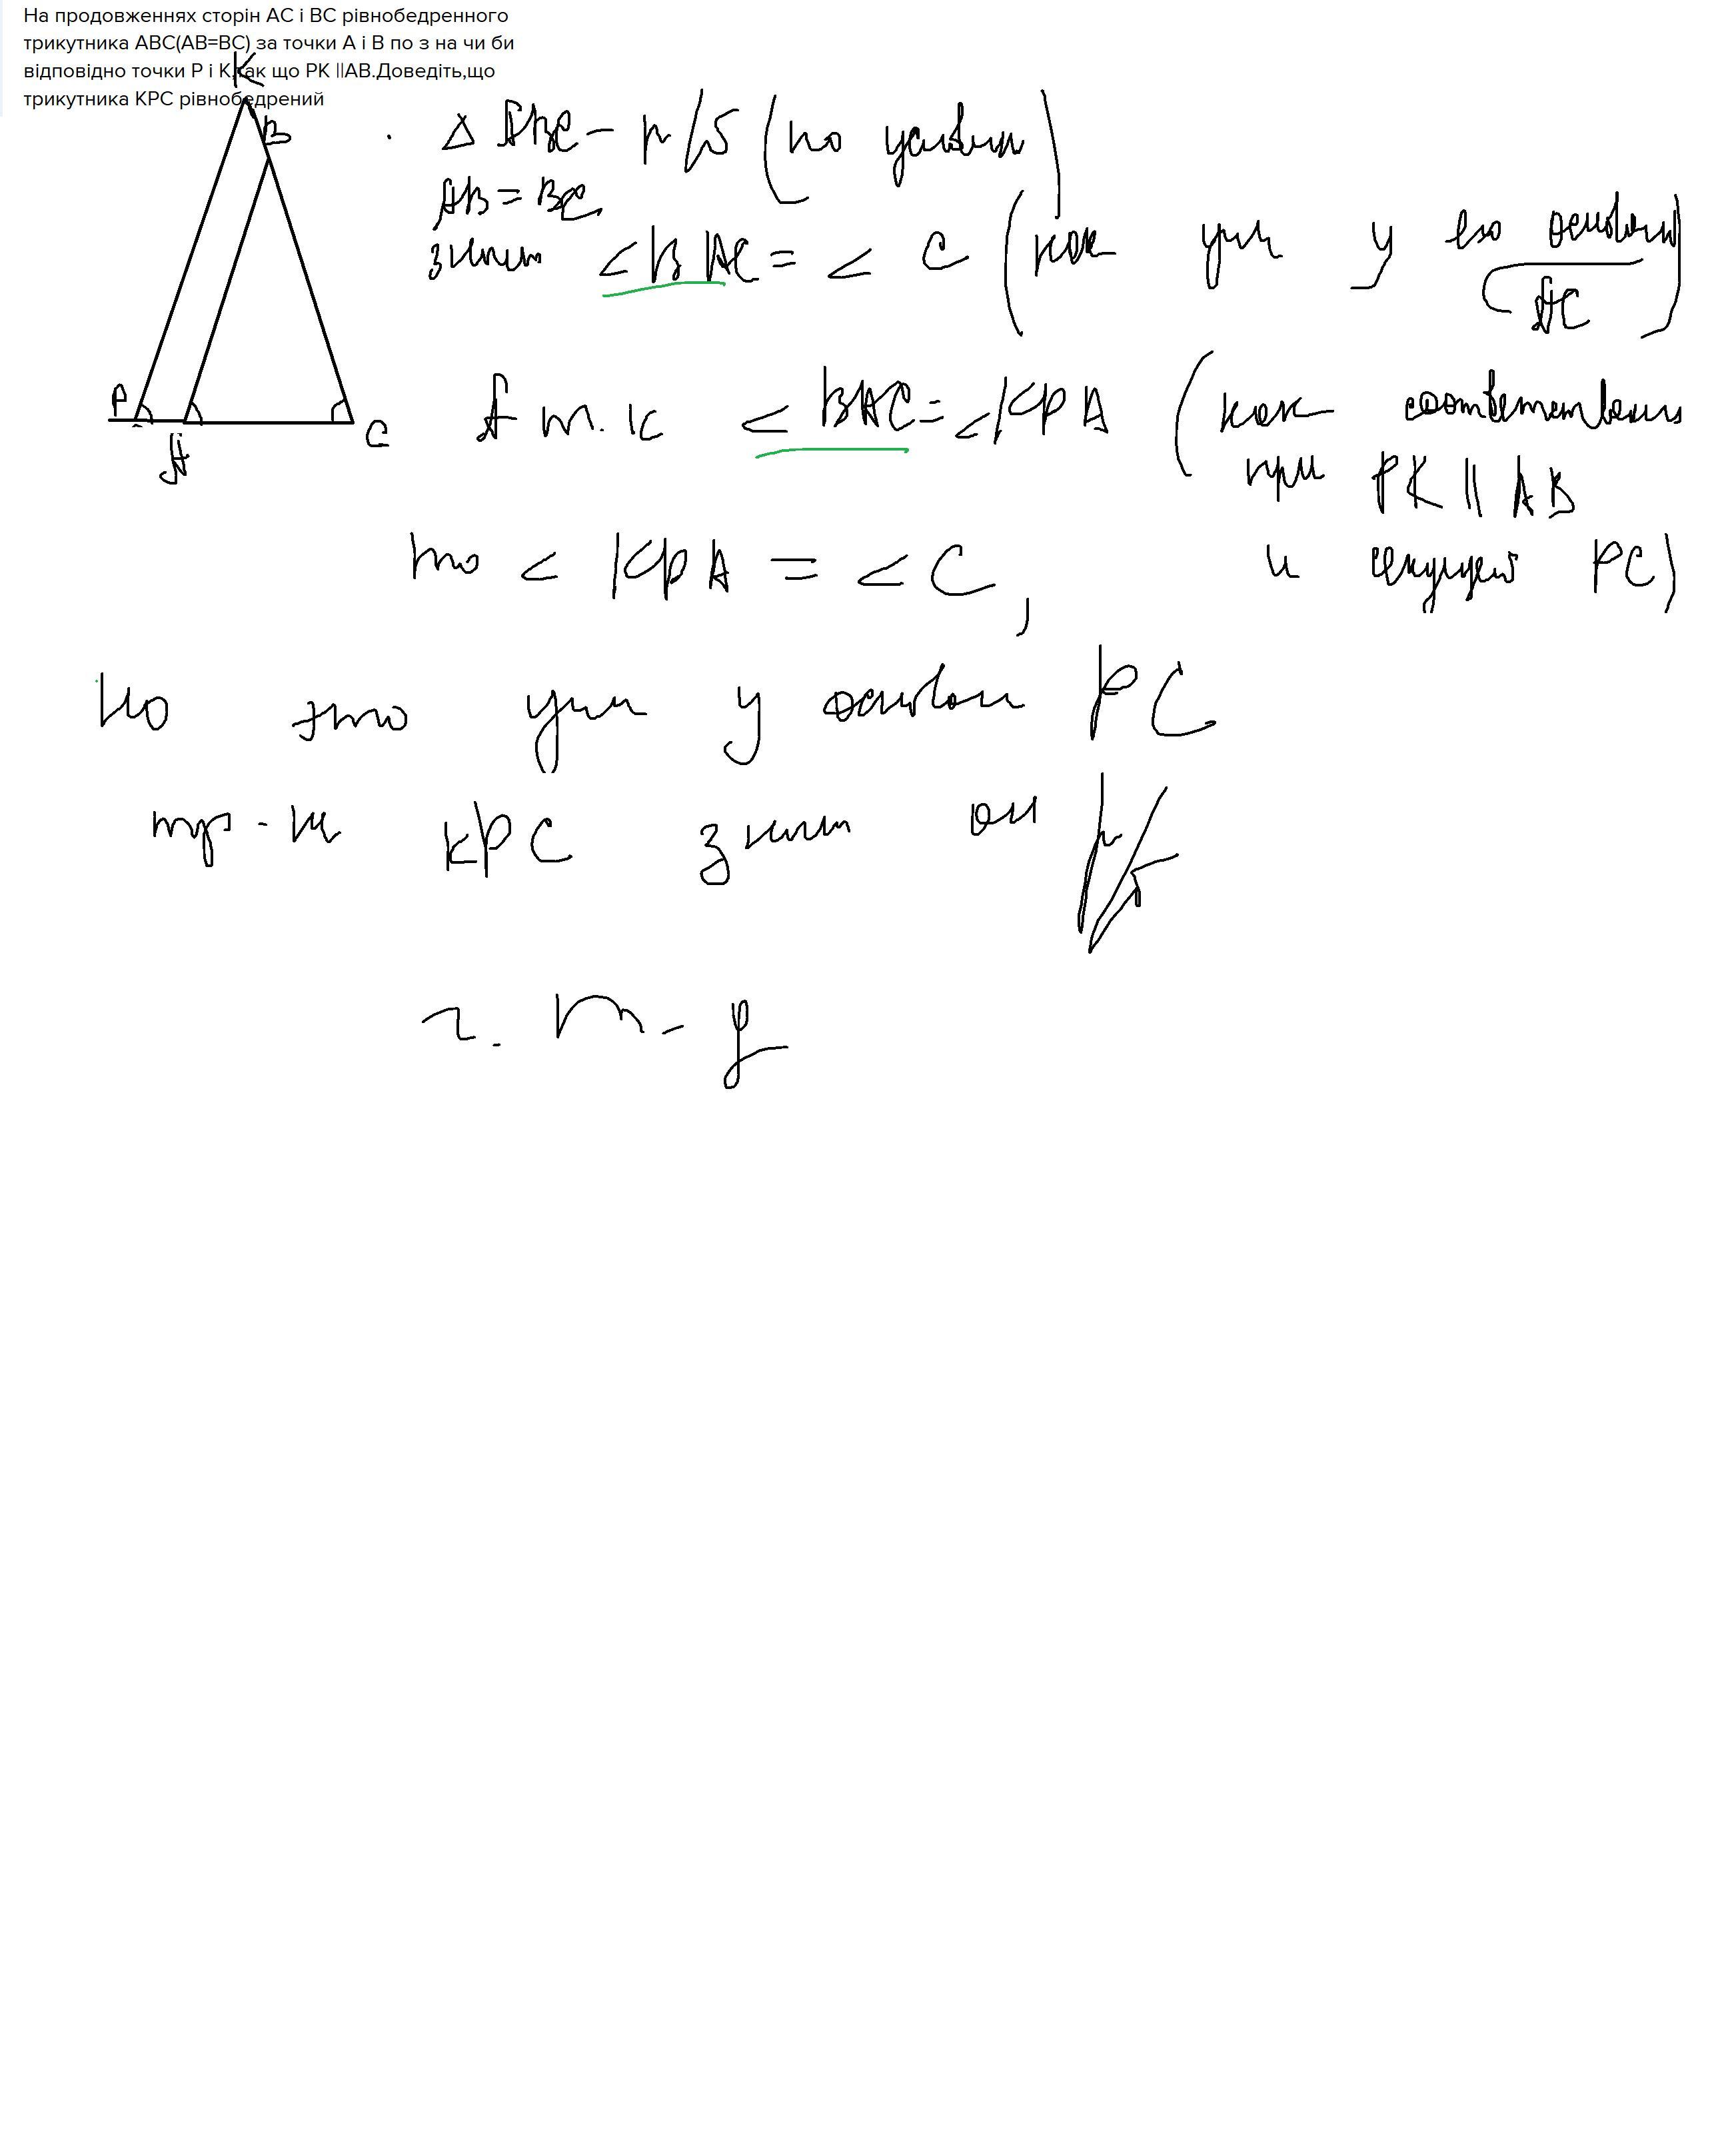 На продовженнях сторін AC і BC рівнобедренного
трикутника ABC(AB=BC) за точки A і B по з на чи би
відповідно точки P і K,так що PK ||AB.Доведіть,що
трикутника KPC рівнобедрений
K
B
P
A
C
Δ ABC – р/б (по условию)
AB = BC
значит < BAC = < C (как углы у его основания
AC)
А т.к < BAC = < KPA (как соответственные
при PK || AB
и секущей PC)
то < KPA = < C,
но это углы у основания PC
тр-ка KPC значит он р/б
ч. т. д